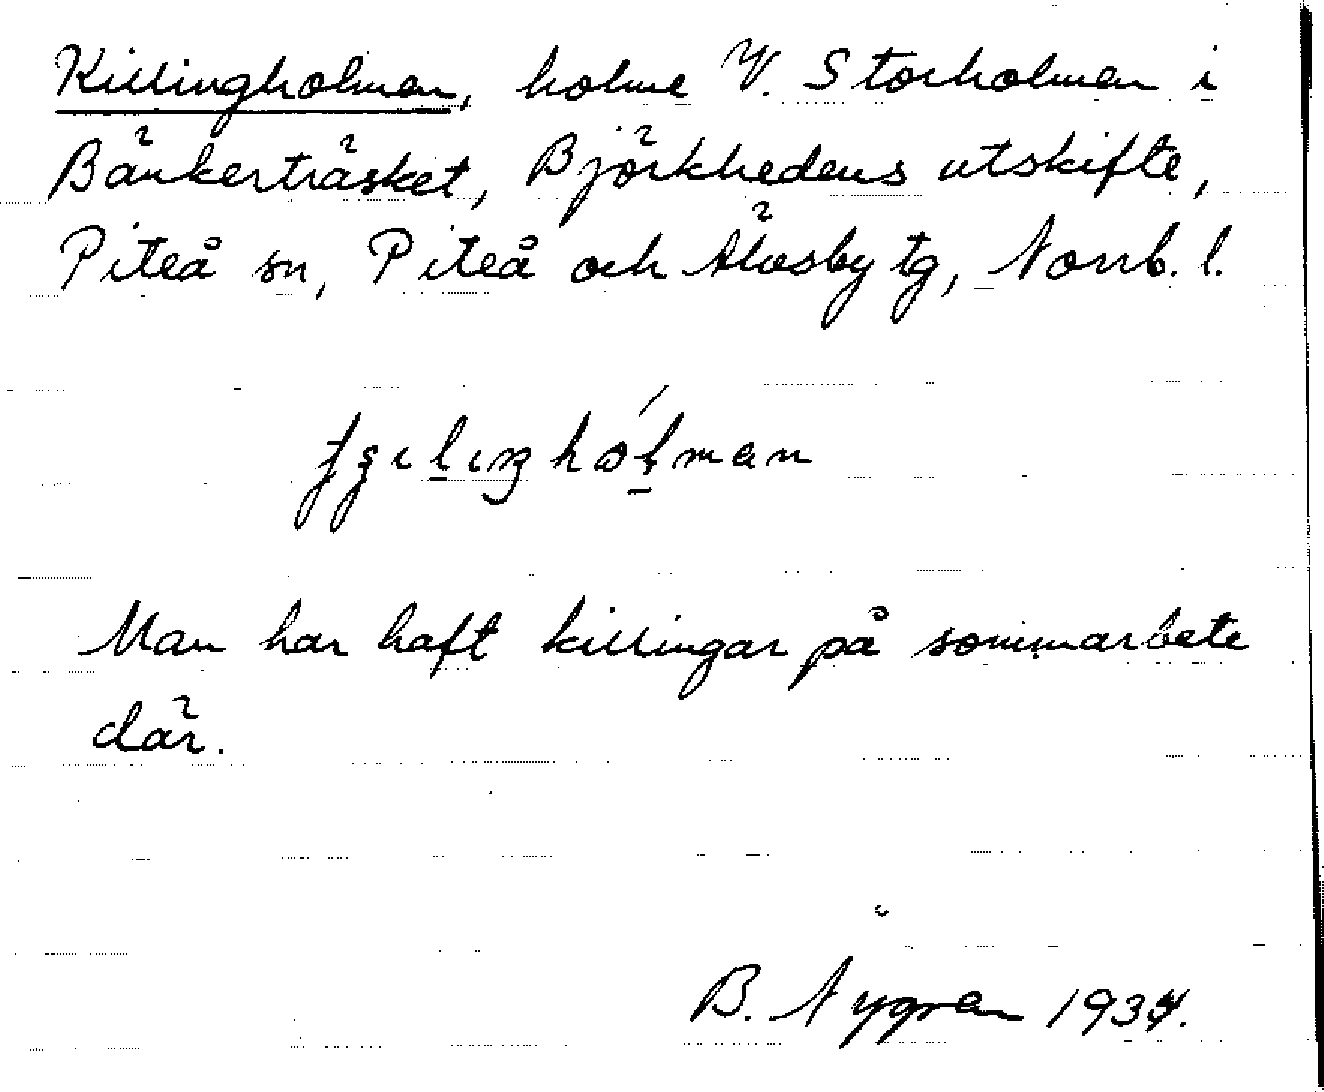 Killingholmen, holme V. Storholmen i
Bänkerträsket, Björkhedens utskifte,
Piteå sn, Piteå och Älvsby tg, Norrb. l.
Man har haft killingar på sommarbete
där.
B. Nygren 1934.